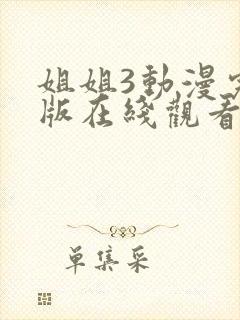 姐姐3動漫
版在綫觀看
單集采